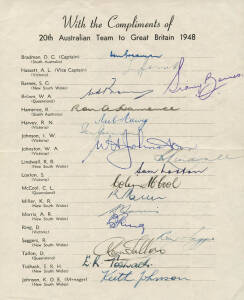 With the Compliments of
20th Australian Team to Great Britain 1948
Bradman, D. G. (Captain)
(South Australia)
Hassett, A. L. (Vice Captain)
(Victoria)
Barnes, S. G.
(New South Wales)
Sidney Barnes
Brown, W. A.
(Queensland)
Hamence, R.
(South Australia)
Ron A Hamence
Harvey, R. N.
(Victoria)
Johnson, I. W.
(Victoria)
Johnston, W. A.
(Victoria)
W A Johnston
Lindwall, R. R.
(New South Wales)
Loxton, S.
(Victoria)
Sam Loxton
McCool, C. L.
(Queensland)
Colin McCool
Miller, K. R.
(New South Wales)
Morris, A. R.
(New South Wales)
Ring, D.
(Victoria)
D Ring
Saggers, R.
(New South Wales)
Ron Saggers
Tallon, D.
(Queensland)
Don Tallon
Toshack, E. R. H.
(New South Wales)
E. R. Toshack
Johnson, K. O. E. (Manager)
(New South Wales)
Keith Johnson